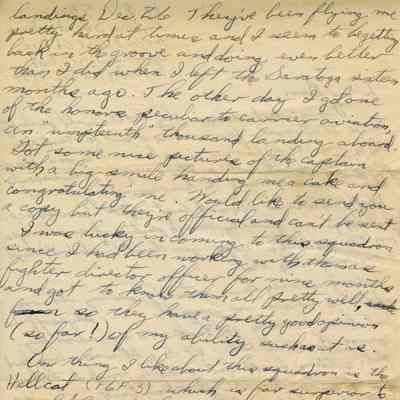 landings Dec. 26. They've been flying me
pretty hard at times and I seem to be getting
back in the groove and doing even better
than I did when I left the Saratoga sixteen
months ago. The other day I got one
of the honors peculiar to carrier aviation,
an "umpteenth" thousand landing aboard.
Got some nice pictures of the captain
with a big smile handing me a cake and
"congratulating" me. Would like to send you
a copy but they're official and can't be sent
I was lucky in coming to this squadron
since I had been working with them as
fighter director officer for nine months
and got to know them all pretty well,
so they have a pretty good opinion
(so far!) of my ability such as it is.
One thing I like about this squadron is the
Hellcat (F6F-3) which is far superior to